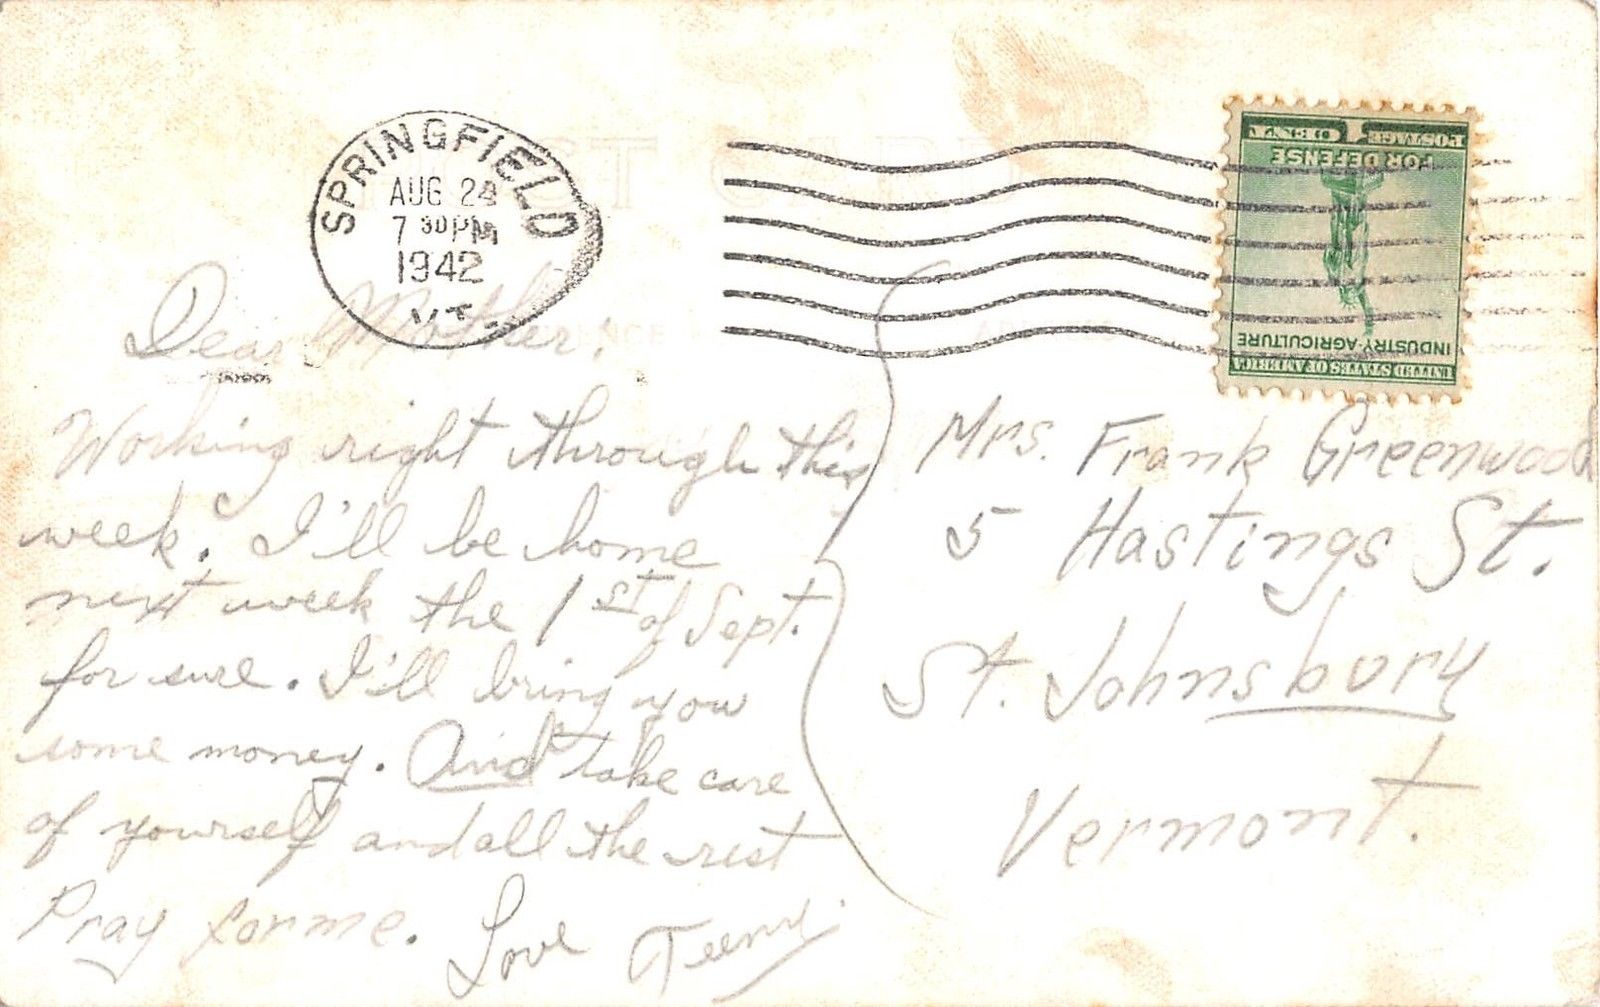 SPRINGFIELD
AUG 24
7 30 PM
1942
VT.
1 CENT 1 POSTAGE
FOR DEFENSE
INDUSTRY-AGRICULTURE
UNITED STATES OF AMERICA
Dear Mother:
Working right through this
week. I'll be home
next week the 1st of Sept.
for sure. I'll bring you
some money. And take care
of yourself and all the rest
Pray for me.
Love
Mrs. Frank Greenwood
5 Hastings St.
St. Johnsbury
Vermont.